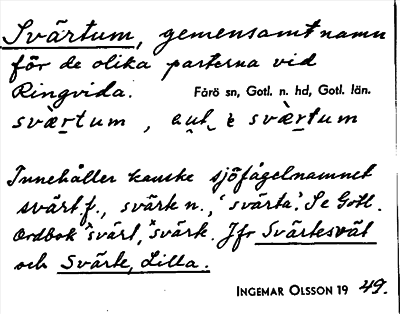 Svärtum, gemensamt namn
för de olika parterna vid
Ringvida. Fårö sn, Gotl. n. hd, Gotl. län.
svàr̤tum, svàr̤tum
Innehåller kanske sjöfågelnamnet
svärt f., svärk n., 'svärta'. Se Gotl.
Ordbok svärt, svärk. Jfr Svärtesvät
och Svärte, Lilla.
INGEMAR OLSSON 19 49.